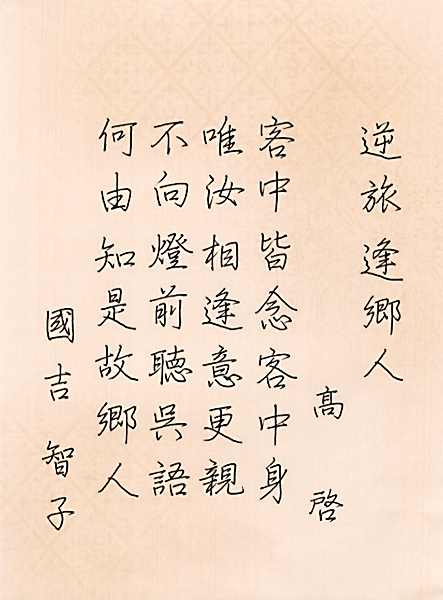 逆旅逢鄉人
高啓
客中皆念客中身
唯汝相逢意更親
不向燈前聽呉語
何由知是故鄉人
國吉智子